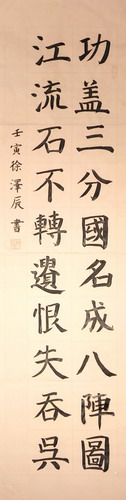 功盖三分國名成八陣圖
江流石不轉遺恨失吞吳
壬寅徐澤辰書